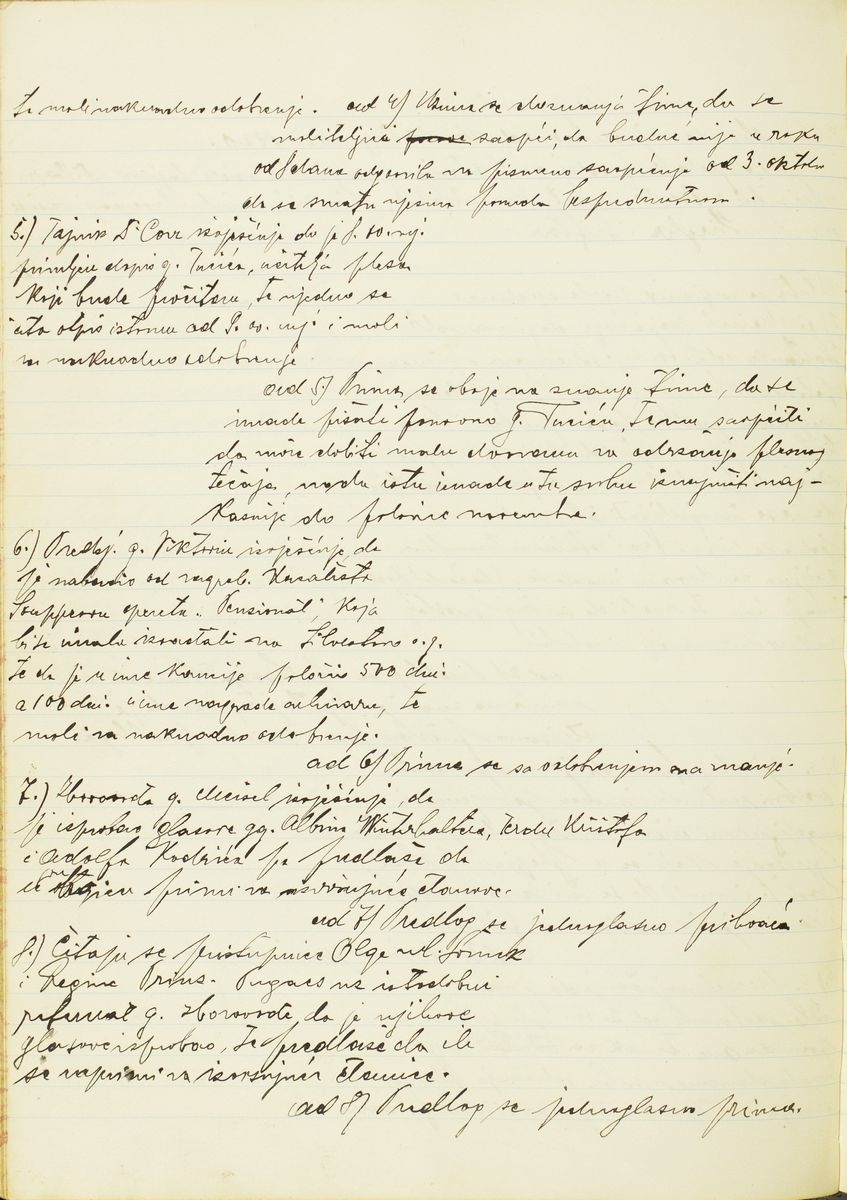 te moli naknadno odobrenje. ad 4) Uzima se do znanja time, da se
moliteljici saopći, da budući nije u roku
od 8 dana odgovorila na pismeno saopćenje od 3. oktobra
da se smatra njezina ponuda bespredmetnom.
5.) Tajnik Dr. izvješćuje da je 8. 10. o.g.
primljen dopis g. Tucića, učitelja plesa
koji bude pročitan, te ujedno se
čita otpis istomu od 9. 10. o.g. i moli
za naknadno odobrenje.
ad 5) Prima se oboje na znanje time, da se
imade pisati ponovno g. Tuciću, te mu saopćiti
da može dobiti malu dvoranu za održanje plesnog
tečaja, no da istu imade u tu svrhu iznajmiti naj-
kasnije do polovice novembra.
6.) Predsj. g. Viktorin izvješćuje, da
je nabavio od zagreb. Kazališta
Souppeovu operetu „Pensionat", koja
bi se imala izvađati na Silvestrovo o.g.
te da je u ime kaucije položio 500 din.
a 100 din. u ime nagrade arhivaru, te
moli za naknadno odobrenje.
ad 6) Prima se sa odobrenjem na znanje.
7.) Zborovođa g. Meisel izvješćuje, da
je isprobao glasove gg. Albina Winterhaltera, Ferde Krištofa
i Adolfa Kodrića pa predlaže da
se primi za izvršujuće članove.
ad 7) Predlog se jednoglasno prihvaća.
8.) Čitaju se pristupnice Olge ml.
i Regine Prins. Pugacs uz istodobni
referat g. zborovođe da je njihove
glasove isprobao, te predlaže da ih
se zaprimi za izvršujuće članice.
ad 8) Predlog se jednoglasno prima.